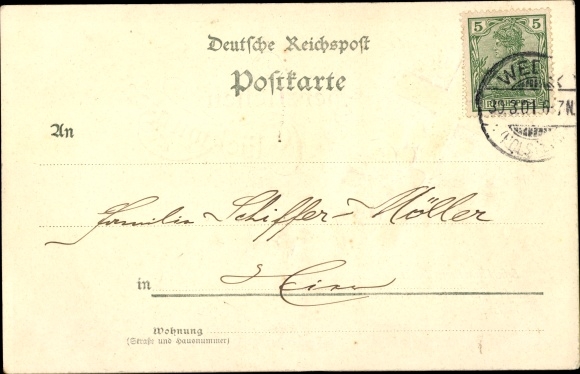 Deutsche Reichspost
Postkarte
5 5
WED
30.3.01.6-7N
An
Familie Schiffer-Möller
in
Wohnung
(Straße und Hausnummer)